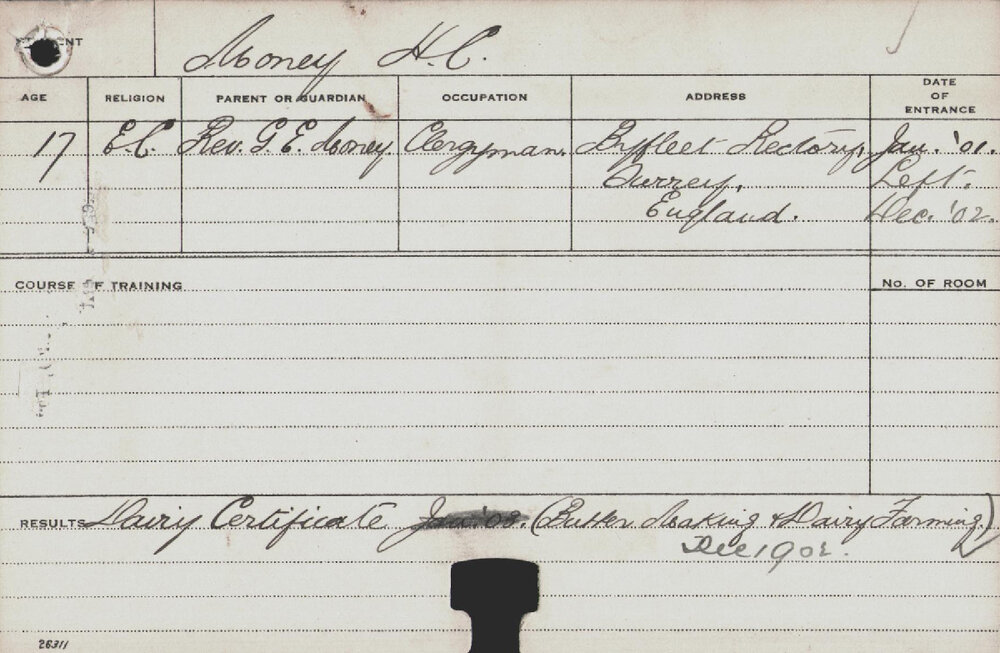 Money H.C.
AGE RELIGION PARENT OR GUARDIAN OCCUPATION ADDRESS DATE OF ENTRANCE
17 E.C. Rev. G. E. Money Clergyman. Byfleet Rectory, Jan. '01.
Surrey, Left.
England. Dec. '02.
COURSE OF TRAINING No. OF ROOM
RESULTS Dairy Certificate Jan. '03. (Butter Making & Dairy Farming)
Dec 1902.
26311